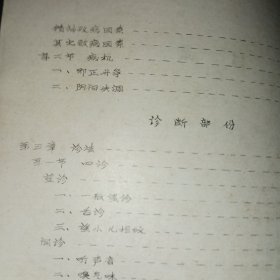 精神致病因素
其它致病因素
第二节 病机
一、邪正斗争
二、阴阳失调
诊断部份
第三章 诊法
第一节 四诊
望诊
一、一般望诊
二、舌诊
三、望小儿指纹
闻诊
一、听声音
二、嗅气味